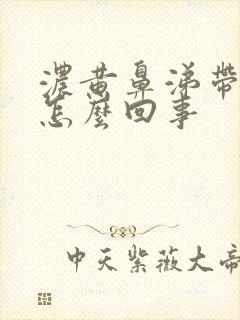 濃黃鼻涕帶
怎麼回事
中天紫薇大帝